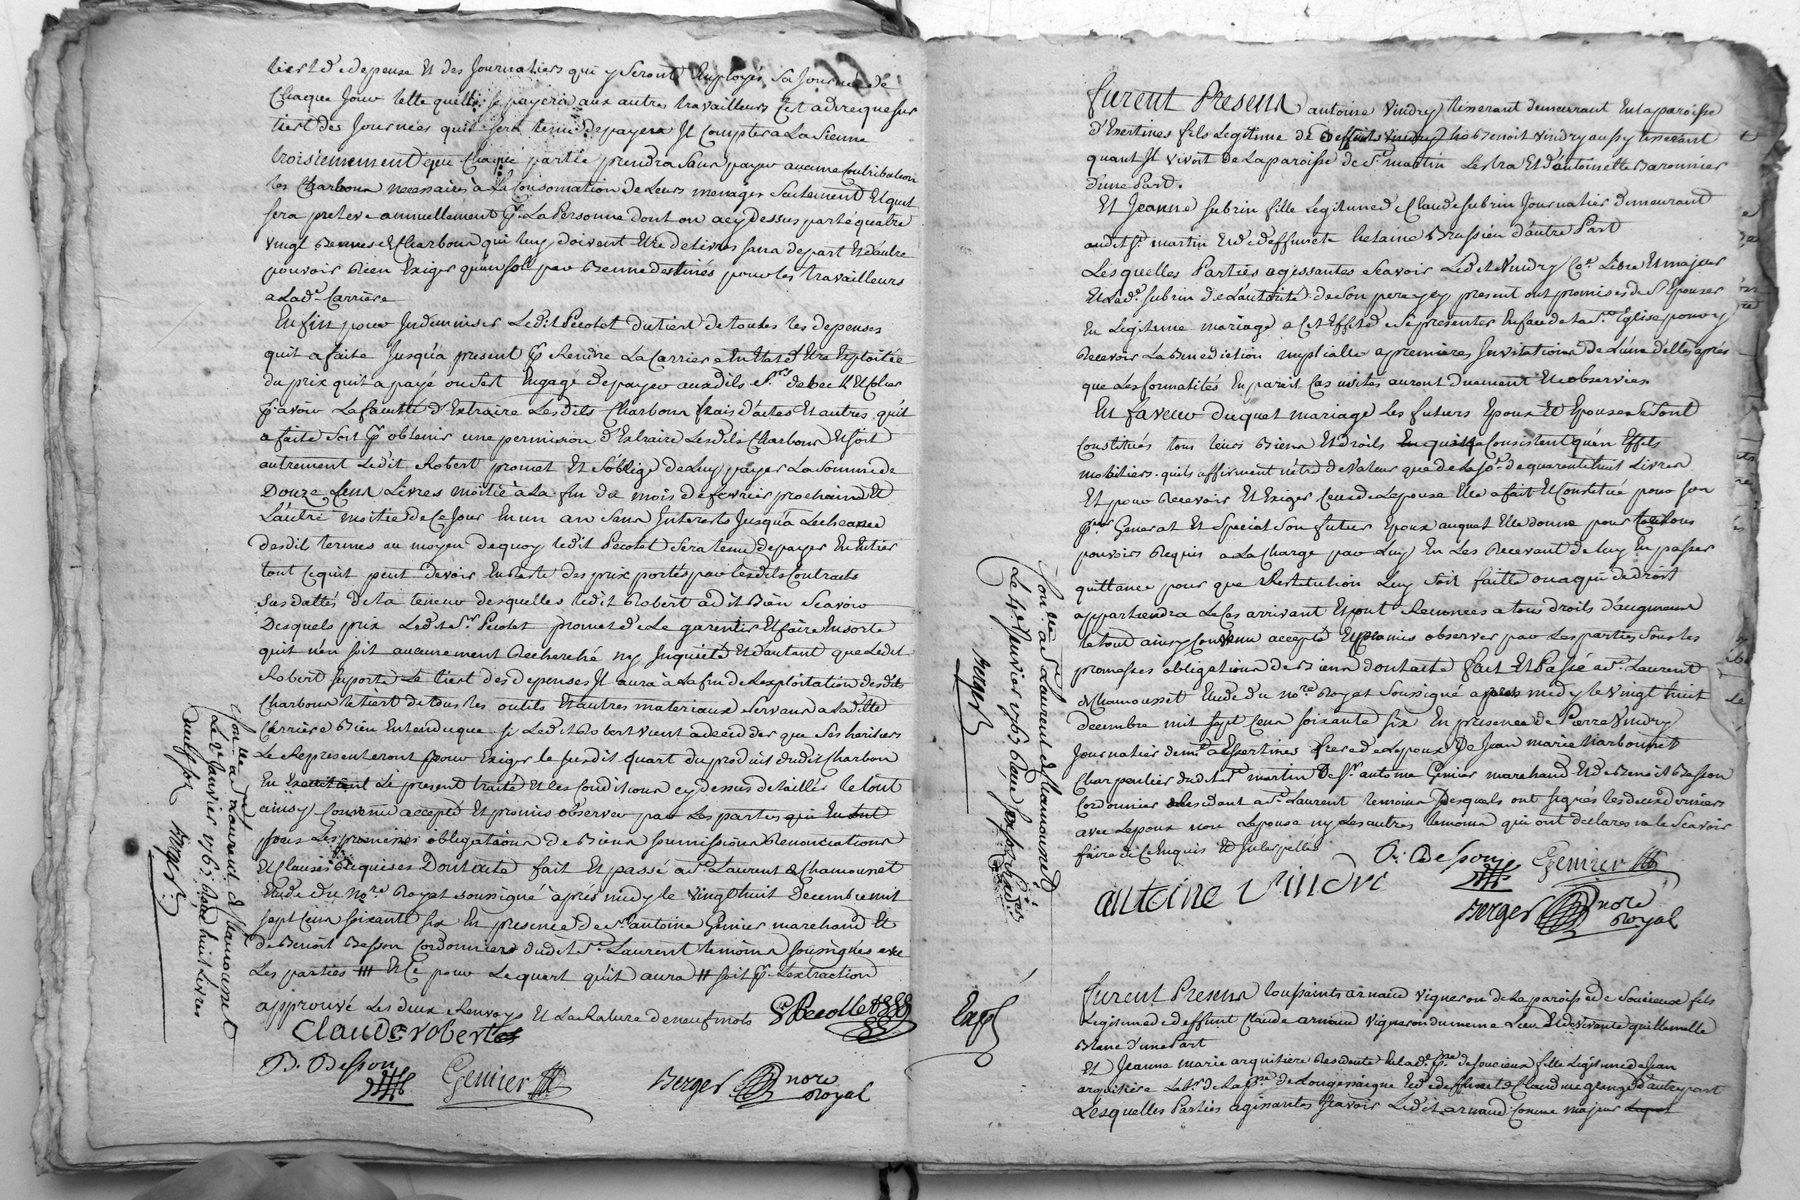 tiers de depense Et des Journaliers qui y seront Employés, sa Journée de
Chaque Jour telle quelle se payera aux autres travailleurs C'est adire que sur
tiers des Journées quil sera tenu de payer Il Comptera La Sienne
troisiemement que Chaque partie prendra sans payer aucune Contribution
les Charbons necessaires a La Consomation de Leurs menages seulement Et quil
sera preleve annuellement pr La Personne dont on a cy dessus parlé quatre
vingt Bennes de Charbons qui luy doivent Etre delivrés sans depart Et d'autre
pouvoir Rien Exiger qu'un sol par Benne destinés pour les travailleurs
a Lade Carriere
Enfin pour Indemniser Ledit Pecolet du tiers de toutes les depenses
quil a faite Jusqu'a present pr Rendre La Carriere En Etat d'Etre Exploitée
du prix quil a payé ou s'est Engagé de payer auxdits Srs
pr avoir La faculté d'Extraire Lesdits Charbons frais d'actes Et autres quil
a faite soit pr obtenir une permission d'Extraire Lesdits Charbons Et soit
autrement Ledit Robert promet Et s'oblige de Luy payer La Somme de
Douze Cens Livres moitié a La fin du mois de fevrier prochain Et
L'autre moitié de Ce Jour En un an sans Interests Jusqu'a Lecheance
desdits termes au moyen de quoy ledit Pecolet sera tenu de payer En Entier
tout Ce quil peut devoir En Reste des prix portés par lesdits Contracts
sus dattés de la teneur desquelles ledit Robert a dit Bien Scavoir
Desquels prix Ledit Sr Pecolet promet de Le garentir Et faire En sorte
quil n'en soit aucunement Recherché ny Inquieté Et d'autant que Ledit
Robert suporte Le tiers des depenses Il aura a La fin de L'exploitation desdits
Charbons le tiers de tous les outils Et autres materiaux servans a Ladite
Carriere Bien Entendu que si Ledit Robert vient a deceder que ses heritiers
Le Representeront pour Exiger le susdit quart du produit dudit Charbon
En Executant Le present traité Et les Conditions cy dessus detaillés le tout
ainsy Convenu accepté Et promis observer par Les parties qui En ont
sous Les promesses obligations de Biens soumissions Renonciations
Et Clauses Requises Dont acte fait Et passé a St Laurent de Chamousset
Etude du Nore Royal soussigné après midy le vingt huit Decembre mil
sept Cens soixante six En presence de Sr antoine Genier marchand Et
de Benoit Besson Cordonnier dudit St Laurent temoins soussignés avec
Les parties Et Ce pour Le quart quil aura soit pr L'extraction
approuvé Les deux Renvoys Et La Rature de neuf mots
P Pecollet
Claude Robert
B. Besson
Genier
Berger nore Royal
Con.lle a St Laurent de Chamousset
Le Janvier 1767 Reçu huit Livres
Berger
furent Presens antoine Vindry tisserant demeurant En la paroisse
d'Essertines fils Legitime de deffunt Vindry Benoit Vindry aussy tisserant
quant Il vivoit de La paroisse de St martin Lestra Et d'antoinette Baronnier
d'une Part.
Et Jeanne Subrin fille Legitime de Claude Subrin Journalier demeurant
audit St martin Et de deffuncte helaine Brussieu d'autre Part
Lesquelles Parties agissantes Scavoir Ledit Vindry Coe Libre Et majeur
Et Lade Subrin de L'autorité de son pere cy present ont promis de s'Epouser
En Legitime mariage a Cet Effet de se presenter En face de la Ste Eglise pour y
Recevoir La Benediction nuptialle a premieres Invitations de L'un d'elles après
que Les formalités En pareil Cas usités auront duement Eté observées.
En faveur duquel mariage Les futurs Epoux Et Epouse se sont
Constitués tous leurs Biens Et droits Consistent qu'en Effets
mobiliers. quils affirment n'etre de valeur que de La so.e de quarente huit Livres
Et pour Recevoir Et Exiger Ceux de L'epouse Elle a fait Et Constitué pour son
pr General Et Special son futur Epoux auquel Elle donne pour tous
pouvoirs Requis a La Charge par Luy En Les Recevant de luy En passer
quittance pour que Restitution Luy soit faitte ou a qui de droit
appartiendra Le Cas arrivant Et ont Renoncés a tous droits d'augment
le tout ainsy Convenu accepté Et promis observer par Les parties sous les
promesses obligations de Biens dont acte fait Et Passé a St Laurent
de Chamousset Etude du nore Royal soussigné après midy le vingt huit
decembre mil sept Cens soixante six En presence de Pierre Vindry
Journalier demt a Essertines frere de L'epoux De Jean marie Narbonnet
Charpentier dudit St martin De Sr antoine Genier marchand Et de Benoit Besson
Cordonnier Residant a St Laurent temoins Desquels ont signés les deux derniers
avec L'epoux non L'epouse ny Les autres temoins qui ont declarés ne le Scavoir
faire de Ce Enquis Et Interpellés
antoine Vindri
B. Besson
Genier
Berger nore Royal
Con.lle a St Laurent de Chamousset
Le Janvier 1767
Berger
Exp.
furent Presens toussaints arnaud vigneron de La paroisse de Soucieux fils
Legitime de deffunt Claude arnaud vigneron du meme Lieu Et de vivante guillemette
Blanc d'une Part
Et Jeanne marie arquiliere Residente En lad. psse de soucieux fille Legitime de Jean
arquiliere de La psse de Longessaigne Et de deffunte Claudine grange d'autre part
Lesquelles Parties agissantes Scavoir Ledit arnaud Comme majeur